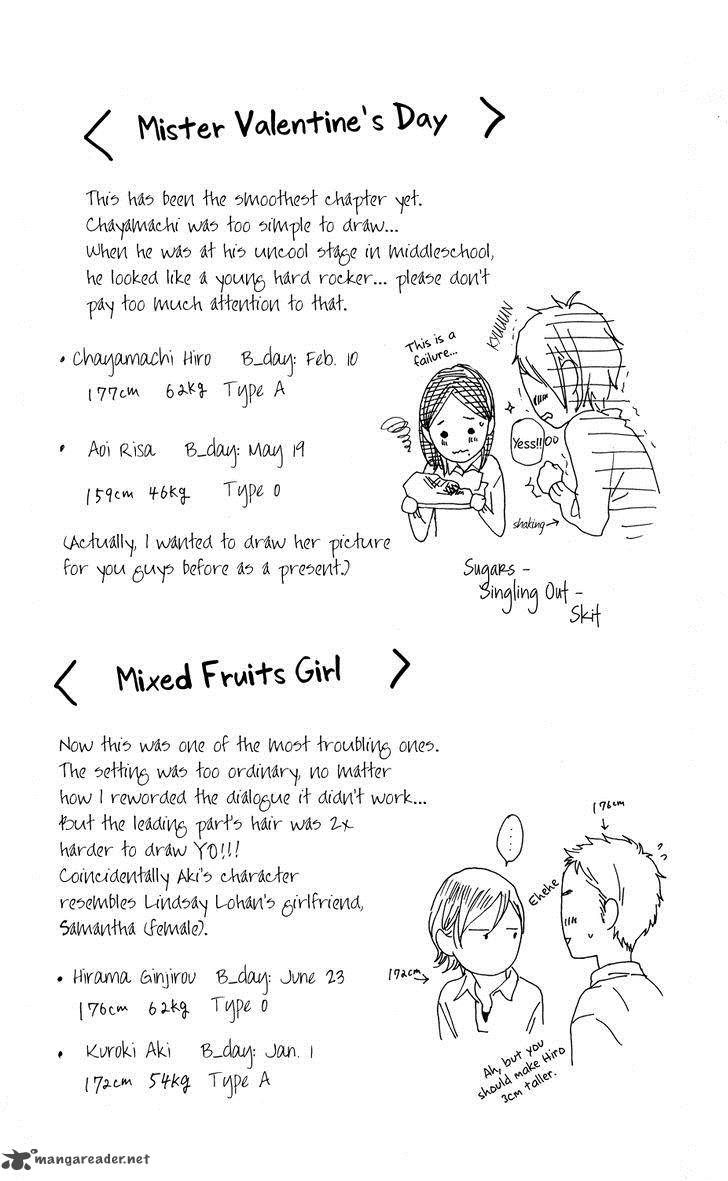 < Mister Valentine's Day >
This has been the smoothest chapter yet.
Chayamachi was too simple to draw...
When he was at his uncool stage in middleschool,
he looked like a young hard rocker... please don't
pay too much attention to that.
• Chayamachi Hiro B_day: Feb. 10
177cm 62kg Type A
• Aoi Risa B_day: May 19
159cm 46kg Type O
(Actually, I wanted to draw her picture
for you guys before as a present.)
This is a
failure...
KYUUUN
Yess!!
shaking→
Sugars -
Singling Out -
Skit
< Mixed Fruits Girl >
Now this was one of the most troubling ones.
The setting was too ordinary, no matter
how I reworded the dialogue it didn't work...
But the leading part's hair was 2x
harder to draw YO!!!
Coincidentally Aki's character
resembles Lindsay Lohan's girlfriend,
Samantha (female).
• Hirama Ginjirou B_day: June 23
176cm 62kg Type O
• Kuroki Aki B_day: Jan. 1
172cm 54kg Type A
176cm
↓
....
Ehehe
172cm→
Ah, but you
should make Hiro
3cm taller.
mangareader.net